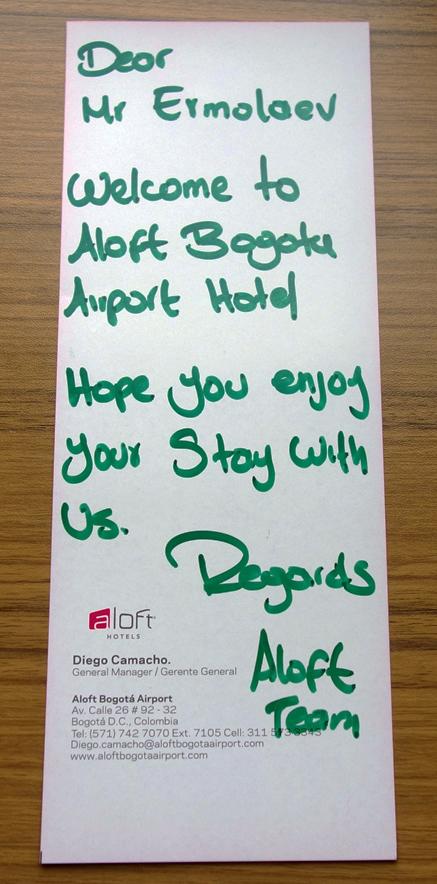 Dear
Mr Ermolaev
Welcome to
Aloft Bogota
Airport Hotel
Hope you enjoy
your Stay with
Us.
Regards
Aloft
Team
aloft
HOTELS
Diego Camacho.
General Manager / Gerente General
Aloft Bogotá Airport
Av. Calle 26 # 92 - 32
Bogotá D.C., Colombia
Tel: (571) 742 7070 Ext. 7105 Cell: 311
Diego.camacho@aloftbogotaairport.com
www.aloftbogotaairport.com